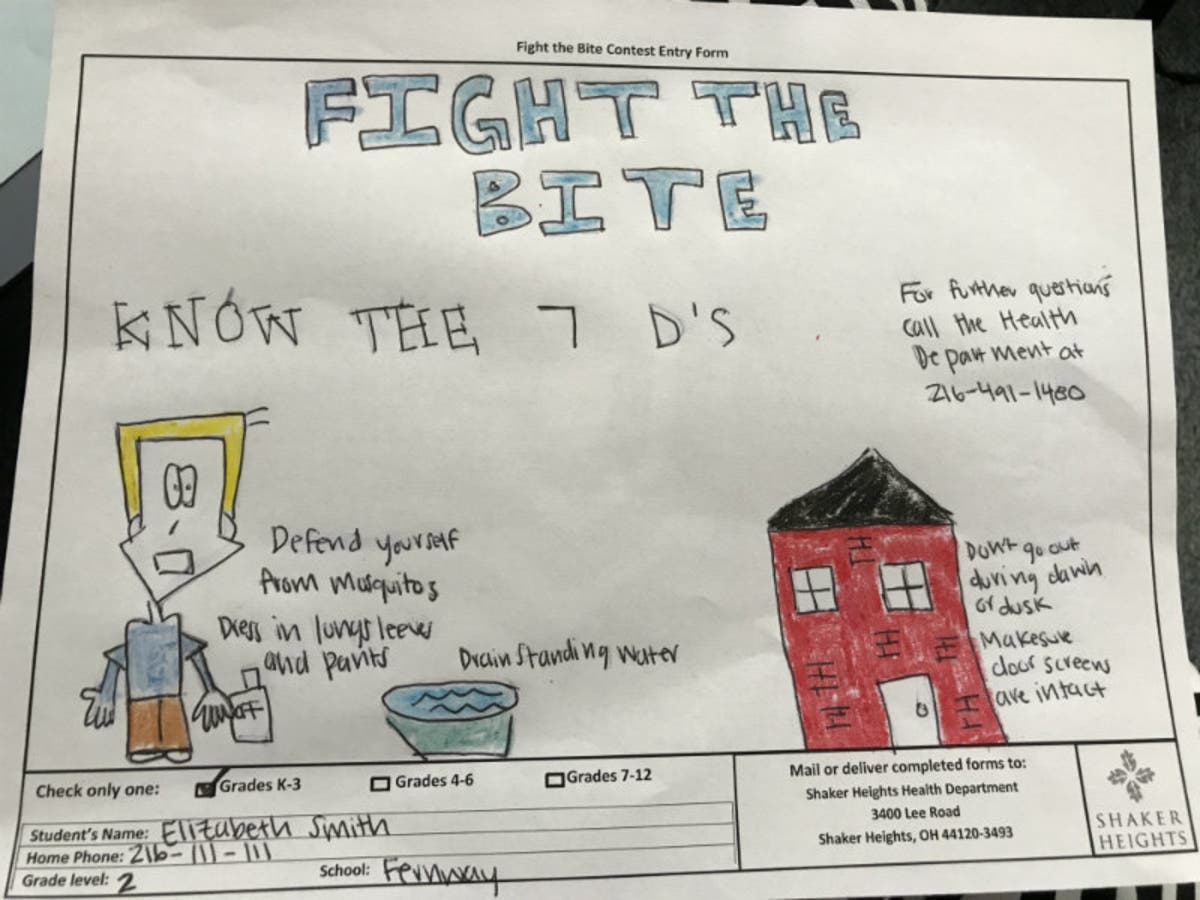 Fight the Bite Contest Entry Form
FIGHT THE
BITE
KNOW THE 7 D'S
For further questions
call the Health
Department at
216-491-1480
Defend yourself
from Mosquitos
Dress in longsleeves
and pants
OFF
Drain Standing Water
Don't go out
during dawn
or dusk
Makesure
door screens
are intact
Check only one: Grades K-3 Grades 4-6 Grades 7-12
Student's Name: Elizabeth Smith
Home Phone: 216-111-111
Grade level: 2 School: Fernway
Mail or deliver completed forms to:
Shaker Heights Health Department
3400 Lee Road
Shaker Heights, OH 44120-3493
SHAKER
HEIGHTS